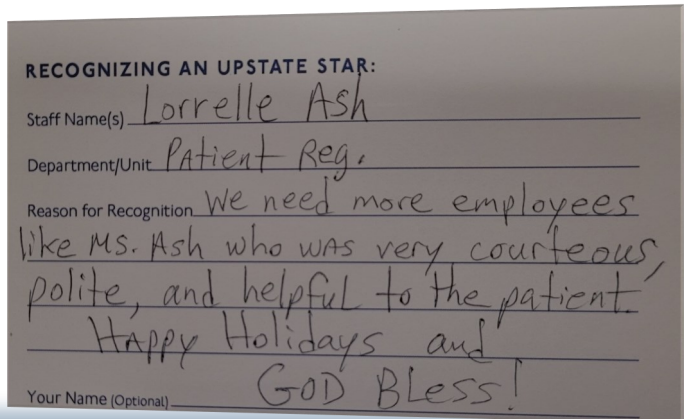 RECOGNIZING AN UPSTATE STAR:
Staff Name(s) Lorrelle Ash
Department/Unit Patient Reg.
Reason for Recognition We need more employees
like Ms. Ash who was very courteous,
polite, and helpful to the patient.
Happy Holidays and
GOD Bless!
Your Name (Optional)